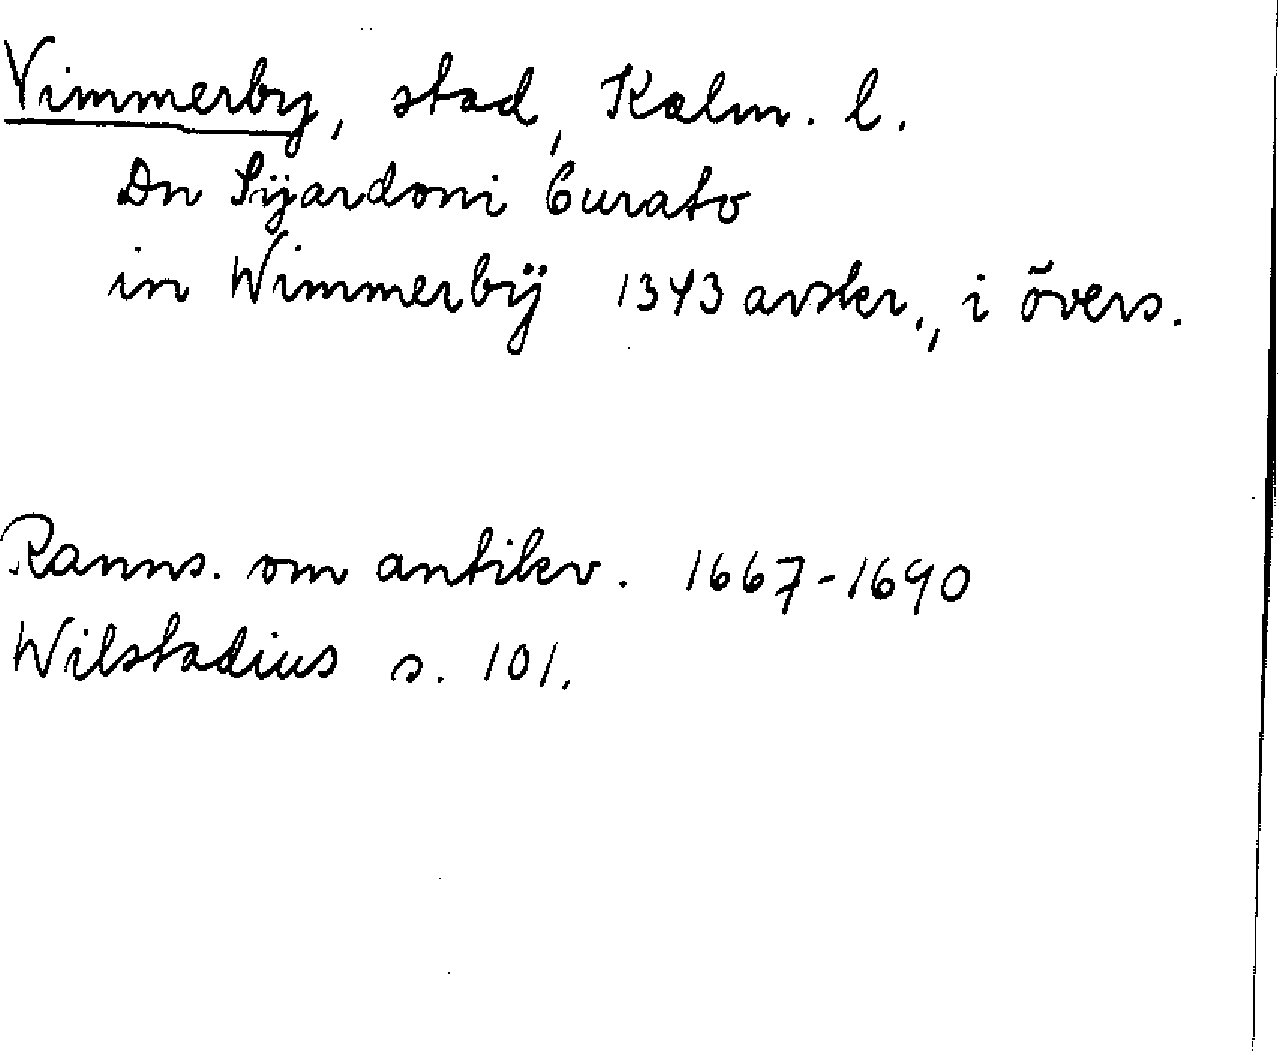 Vimmerby, stad, Kalm. l.
Dn Sÿardoni Curato
in Wimmerbÿ 1343 avskr., i övers.
Ranns. om antikv. 1667-1690
Wilstadius s. 101.